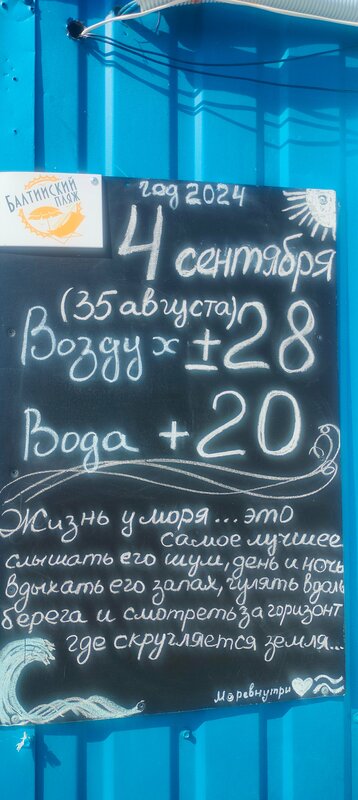 Балтийский
пляж
год 2024
4 сентября
(35 августа)
Воздух ±28
Вода +20
Жизнь у моря... это
самое лучшее
слышать его шум, день и ночь
вдыхать его запах, гулять вдоль
берега и смотреть за горизонт
где скругляется земля...
Моревнутри